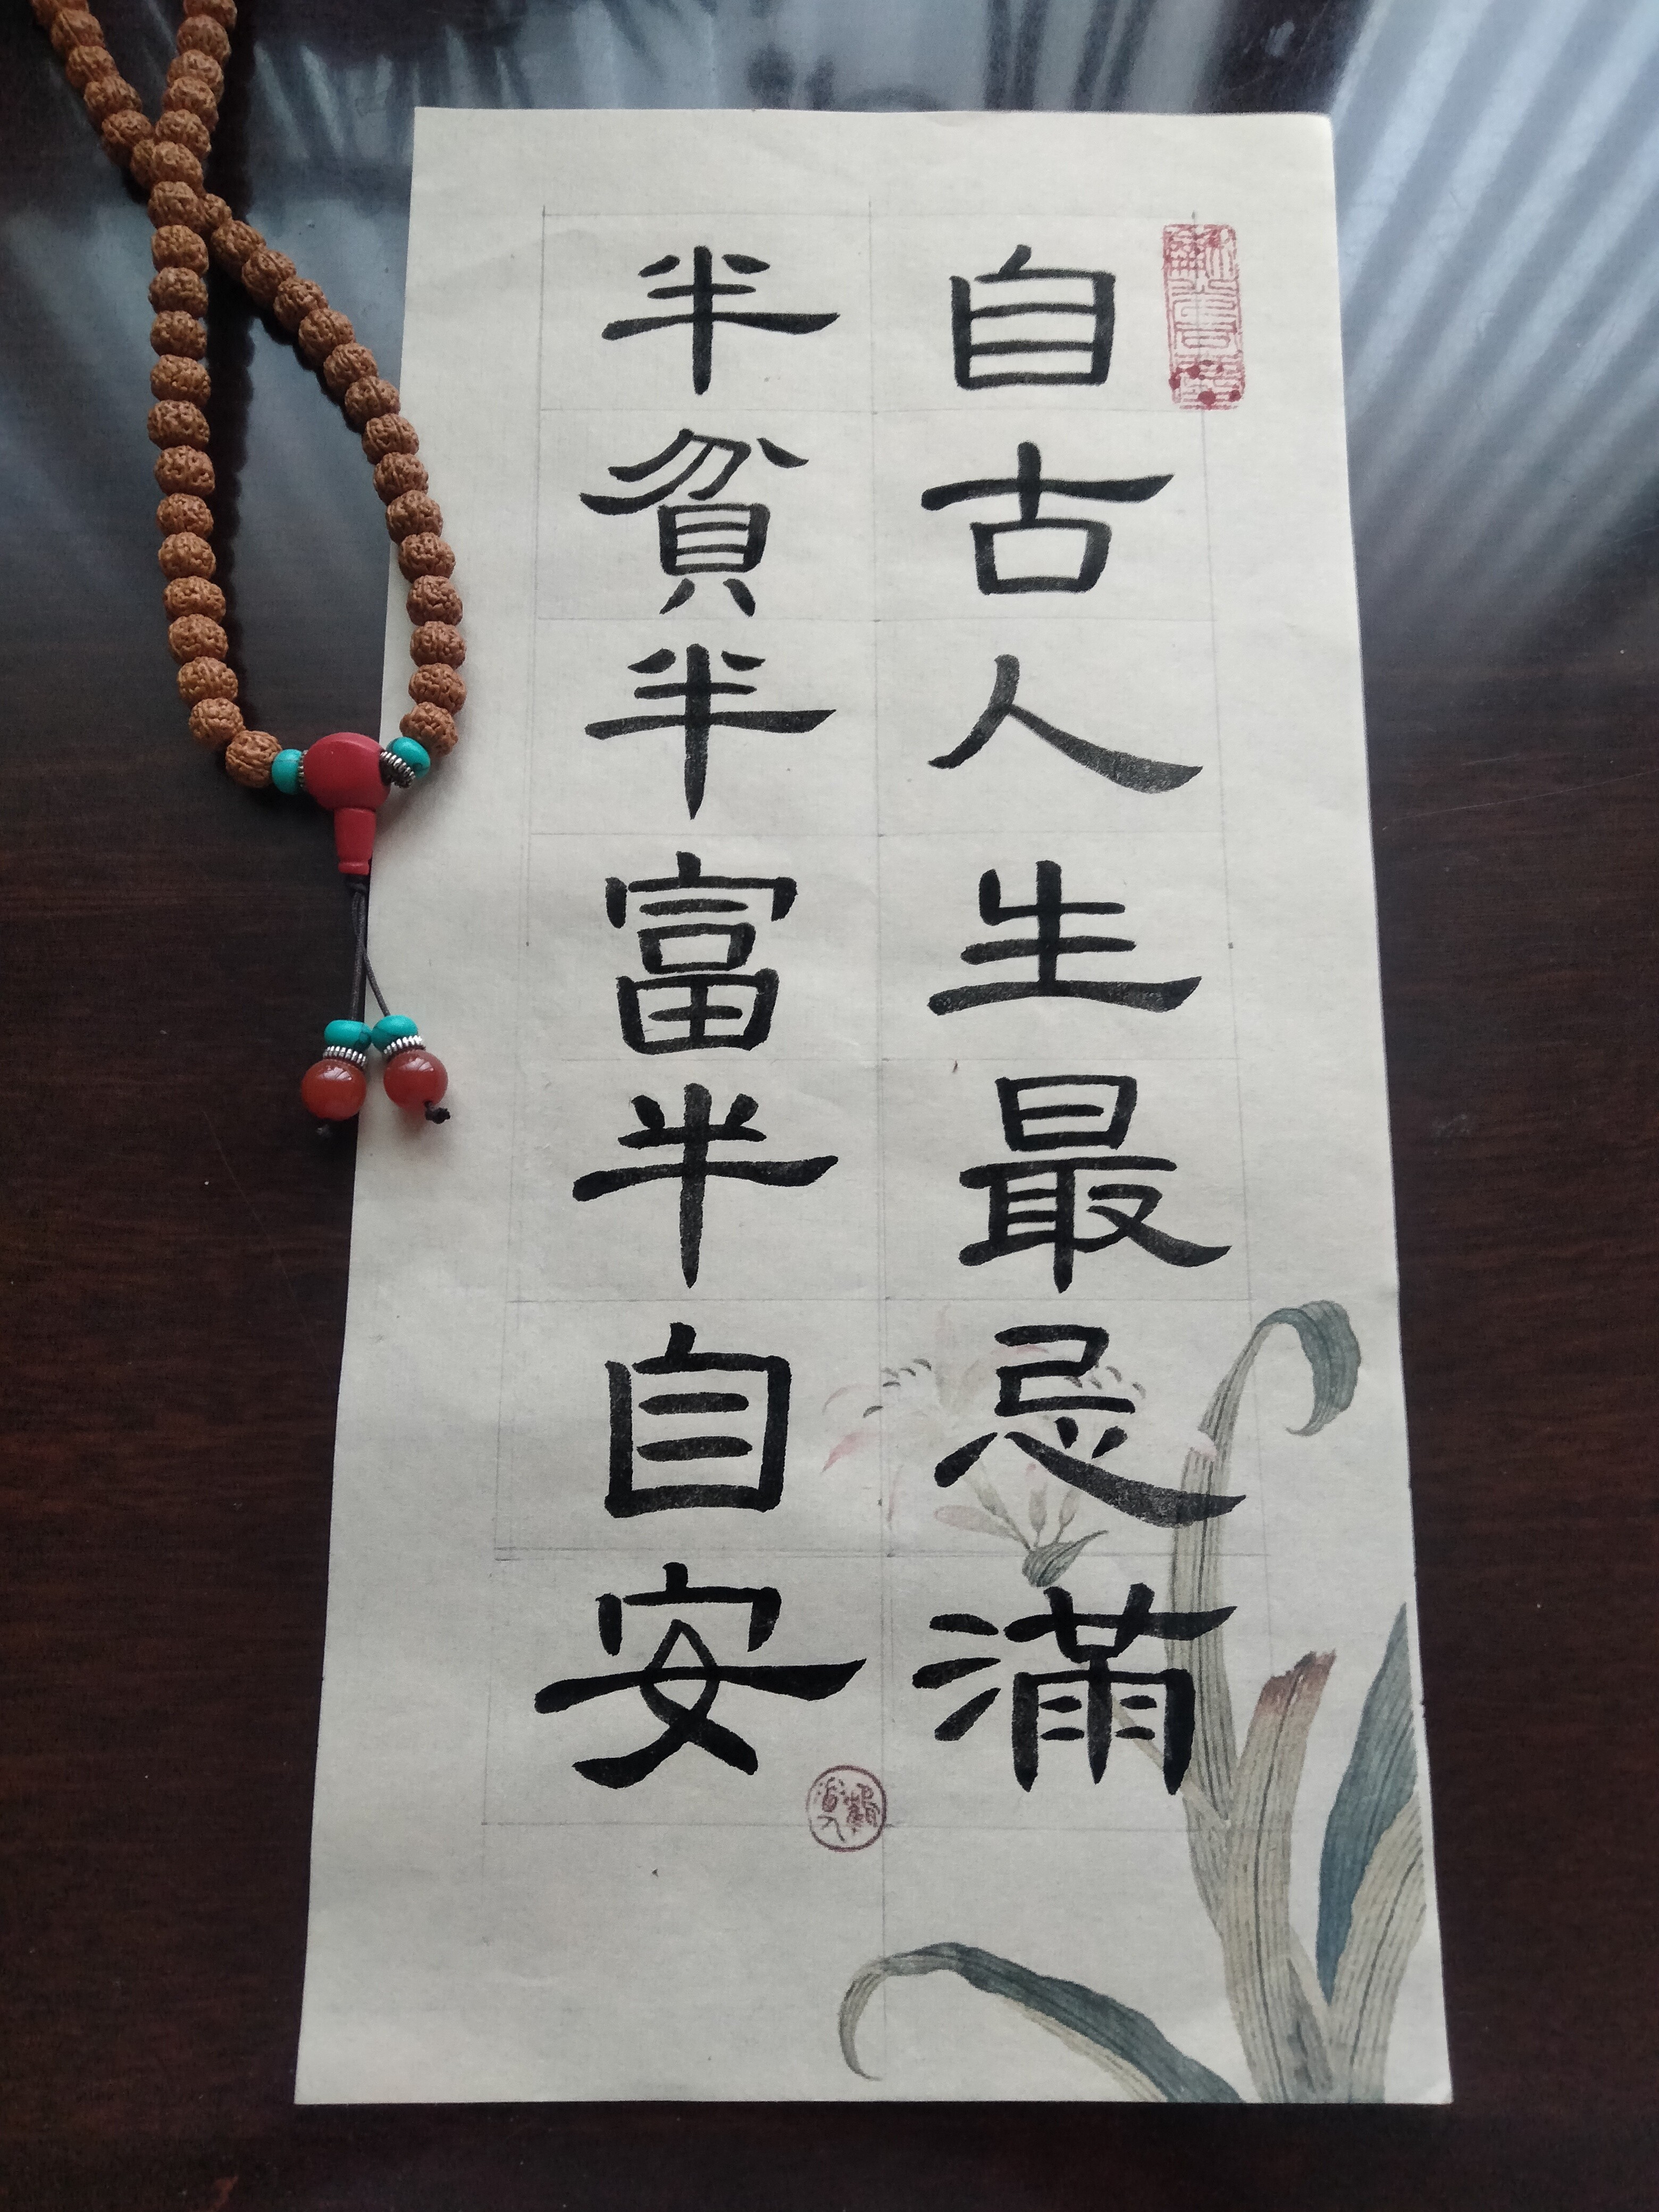 自古人生最忌滿
半貧半富半自安